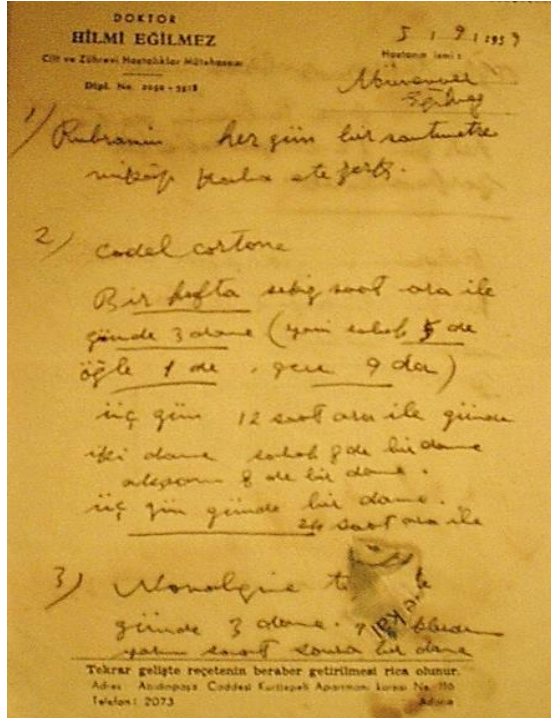 DOKTOR
HİLMİ EĞİLMEZ
Cilt ve Zührevi Hastalıklar Mütehassısı
Dipl. No.
5 / 9 / 1959
Hastanın ismi :
Mürüvvet
Eğilmez
1) Rubramin her gün bir santimetre
mikâp kaba ete zerk.
2) Codelcortone
Bir hafta sekiz saat ara ile
günde 3 dane (yani sabah 5 de
öğle 1 de, gece 9 da)
üç gün 12 saat ara ile günde
iki dane sabah 8 de bir dane
akşam 8 de bir dane.
üç gün günde bir dane.
24 saat ara ile
3) Novalgine
günde 3 dane.
yarım saat sonra bir dane
Tekrar gelişte reçetenin beraber getirilmesi rica olunur.
Adres : Abidinpaşa Caddesi Kurttepeli Apartmanı karşısı No. 110
Telefon : 2073 Adana